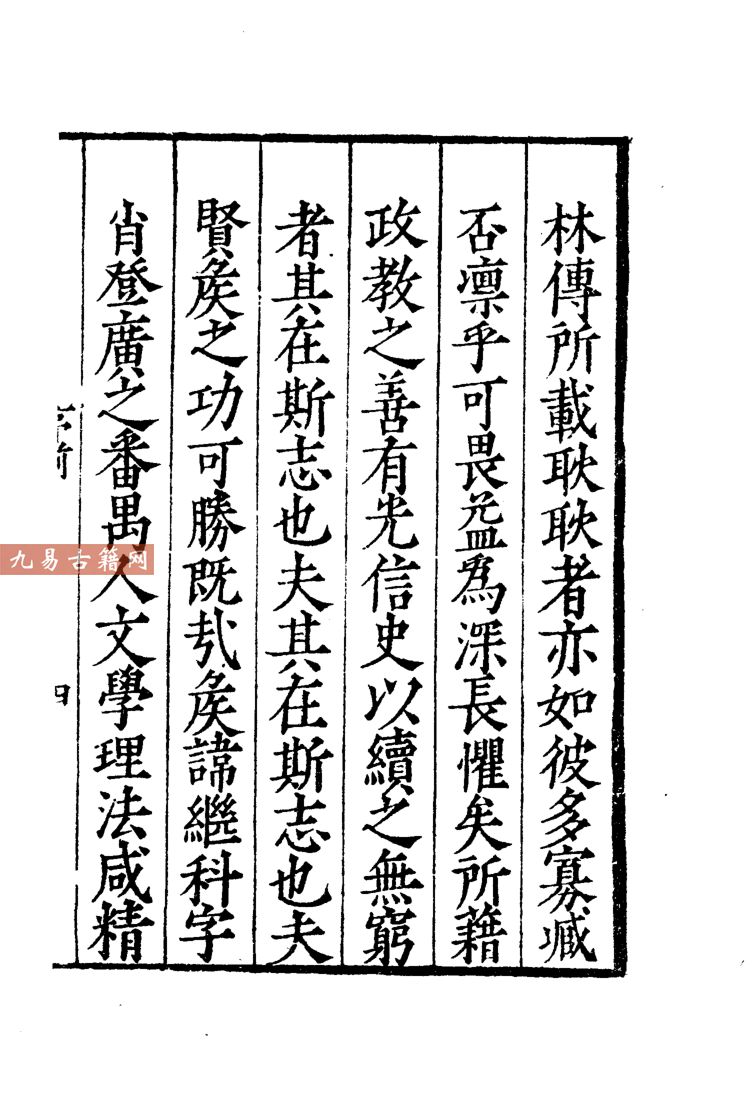 林傳所載耿耿者亦如彼多寡臧
否凛乎可畏益爲深長懼矣所藉
政教之善有光信史以續之無窮
者其在斯志也夫其在斯志也夫
賢矦之功可勝既㢤矦諱繼科字
肖登廣之番禺人文學理法咸精
四
九易古籍网